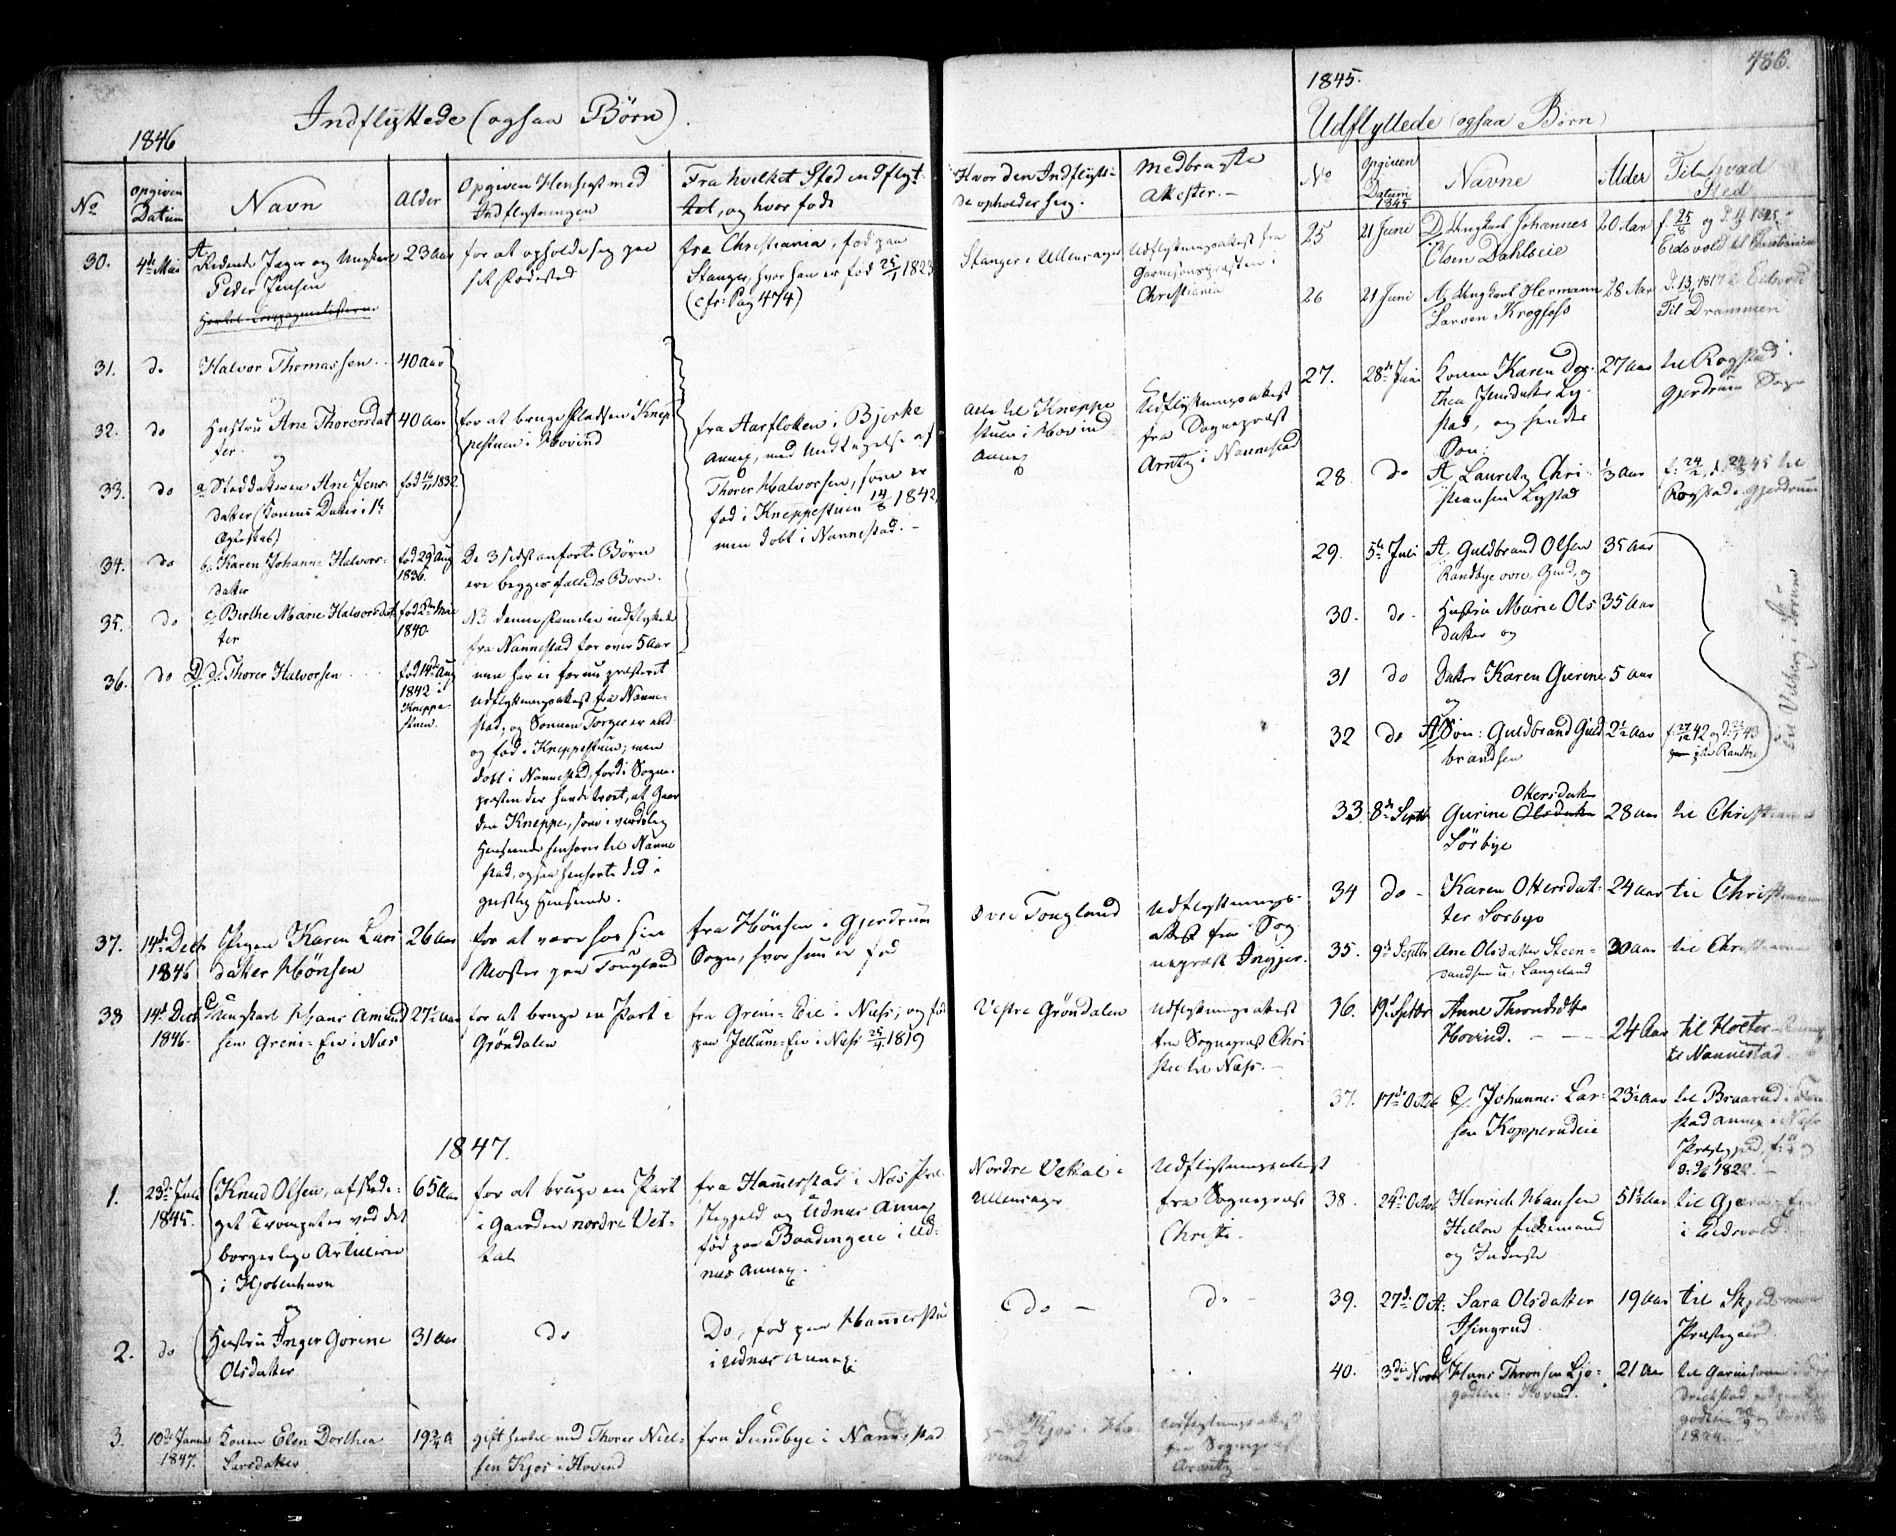 486.
1846
Indflyttede (ogsaa Børn).
No
opgiven Datum
Navn
Alder
Opgiven Hensigt med Indflytningen
Fra hvilket Sted indflyttet, og hvor født
Hvor den Indflyttede opholder sig.
Medbragte Attester. –
30. 4de Mai
Ridende Jæger og Ungkarl
Peder Jensen
23 Aar
for at opholde sig paa
sit Fødested
fra Christiania, fød paa
Stanger, hvor han er fød 25/1 1823
(cfr: Pag 474)
Stanger i Ullensager
Udflytningsattest fra
Garnisonspræsten i
Christiania
31. do
Halvor Thomassen
40 Aar
32. do
Hustru Ane Thorersdat
ter og
40 Aar
for at bruge Pladsen Knep
pestuen i Hovind
fra Aarfloten i Bjerke
Annex, med Undtagelse af
Thorer Halvorsen, som er
fød i Kneppestuen 14/8 1842,
men døbt i Nannestad. –
Kneppe
stuen i Hovind
Annex
Udflytningsattest
fra Sognepræst
Arntz i Nannestad
33. do
a. Steddatteren Ane Jens-
datter (Konens Datter i 1ste
Ægteskab)
fød 16/11 1832
34. do
b. Karen Johanne Halvors-
datter
fød 29 Aug
1836.
De 3 sidstanførte Børn
ere begges fælleds Børn.
35. do
c. Birthe Marie Halvorsdat
ter
1840.
NB denne Familie indflyttede
fra Nannestad for over 5 Aar
36. do
d. Thorer Halvorsen
fød 14de Aug
1842 i
Kneppe-
stuen.
men har ei før nu præsteret
Udflytningsattest fra Nanne-
stad, og Sønnen Torger er end
og fød i Kneppestuen; men
døbt i Nannestad, fordi Sogne-
præsten der havde troet, at Gaar
den Kneppe, som i verdslig
Henseende henhører til Nanne
stad, ogsaa henhørte did i
geistlig Henseende.
37. 14de Decbr
1846
Pigen Karen Lars
datter Hönsen
26 Aar
for at være hos sin
Moster paa Tougland
fra Hönsen i Gjerdrum
Sogn, hvor hun er fød
Øvre Tougland
Udflytnings-
attest fra Sog
nepræst
38 14de Decbr
1846.
Ungkarl Hans Amund
sen Greni-Eie i Næs
27½ Aar
for at bruge en Part i
Gröndalen
fra Greni-Eie i Næs, og fød
paa Jellum-Eie i Næs 25/4 1819
Vestre Gröndalen
Udflytningsattest
fra Sognepræst Chri
stie til Næs. –
1847.
1. 23de Juli
1845.
Knud Olsen, afske-
get Trompeter ved det
borgerlige Artilleri
i Kjøbenhavn
og
65 Aar
for at bruge en Part
i Gaarden nordre Vet-
tal
fra Hammerstad i Næs Præ
stegjeld og Udnæs Annex
fød paa Baadengen i Ud-
næs Annex.
Nordre Vettal i
Ullensager
Udflytningsattest
fra Sognepræst
Christie.
2. do
Hustru Inger Gorine
Olsdatter
31 Aar
do
Do, fød paa Hammerstad
i Udnæs Annex.
Do –
do –
3. 10de Januar
1847.
Konen Elen Dorthea
Larsdatter
19¾ A
gift hertil med Thorer Niel-
sen Kjos i Hovind
fra Sundbye i Nannestad
Kjos i Ho-
vind
Udflytningsattest
fra Sognepræst
Arntz
1845.
Udflyttede (ogsaa Børn)
No
Opgiven Datum 1845
Navne
Alder
Til hvad Sted
25 21 Juni
Ungkarl Johannes
Olsen Dahlseie
20 Aar
Eidsvold til Christiania
26 21 Juni
Ungkarl Hermann
Larsen Krogfoss
28 Aar
Til Drammen
27. 28de Juni
Konen Karen Dor-
thea Jensdatter Ly-
stad, og hendes
Søn:
27 Aar
til Rogstad
Gjerdrum Sogn
28 do
Lauritz Chri-
stiansen Lystad
⅓ Aar
Rogstad i Gjerdrum
29. 5te Juli
Guldbrand Olsen
Randbye øvre, Gmd, og
35 Aar
30. do.
Hustru Marie Ols
datter og
35 Aar
31 do
Datter Karen Gurine
og
5 Aar
32 do
Søn: Guldbrand Guld
brandsen
2½ Aar
33. 8de Septbr
Gurine Ottersdatter
Sörbye
28 Aar
til Christiania
34 do –
Karen Ottersdat-
ter Sorbye
24 Aar
til Christiania
35. 9de Septbr
Ane Olsdatter Steen-
Langeland
30 Aar
til Christiania
36. 19de Septbr
Anne Throndsdtr
Hovind. – –
24 Aar
til Holter
til Nannestad
37. 17de Octob
Johannes Lar-
sen Kopperudeie
23½ Aar
til Braarud
stad Annex i Næs
Præstegjeld
38. 24de Octob
Henrich Hansen
og Inderst
51½ Aar
i Eidsvold.
39. 27de Oct:
Sara Olsdatter
Isingrud
19 Aar
til Skjedsmo
Præstegaard.
40. 3die Novbr
Hans Thronsen Ljo-
godteie i Hovind.
21 Aar
til Garnisonen i